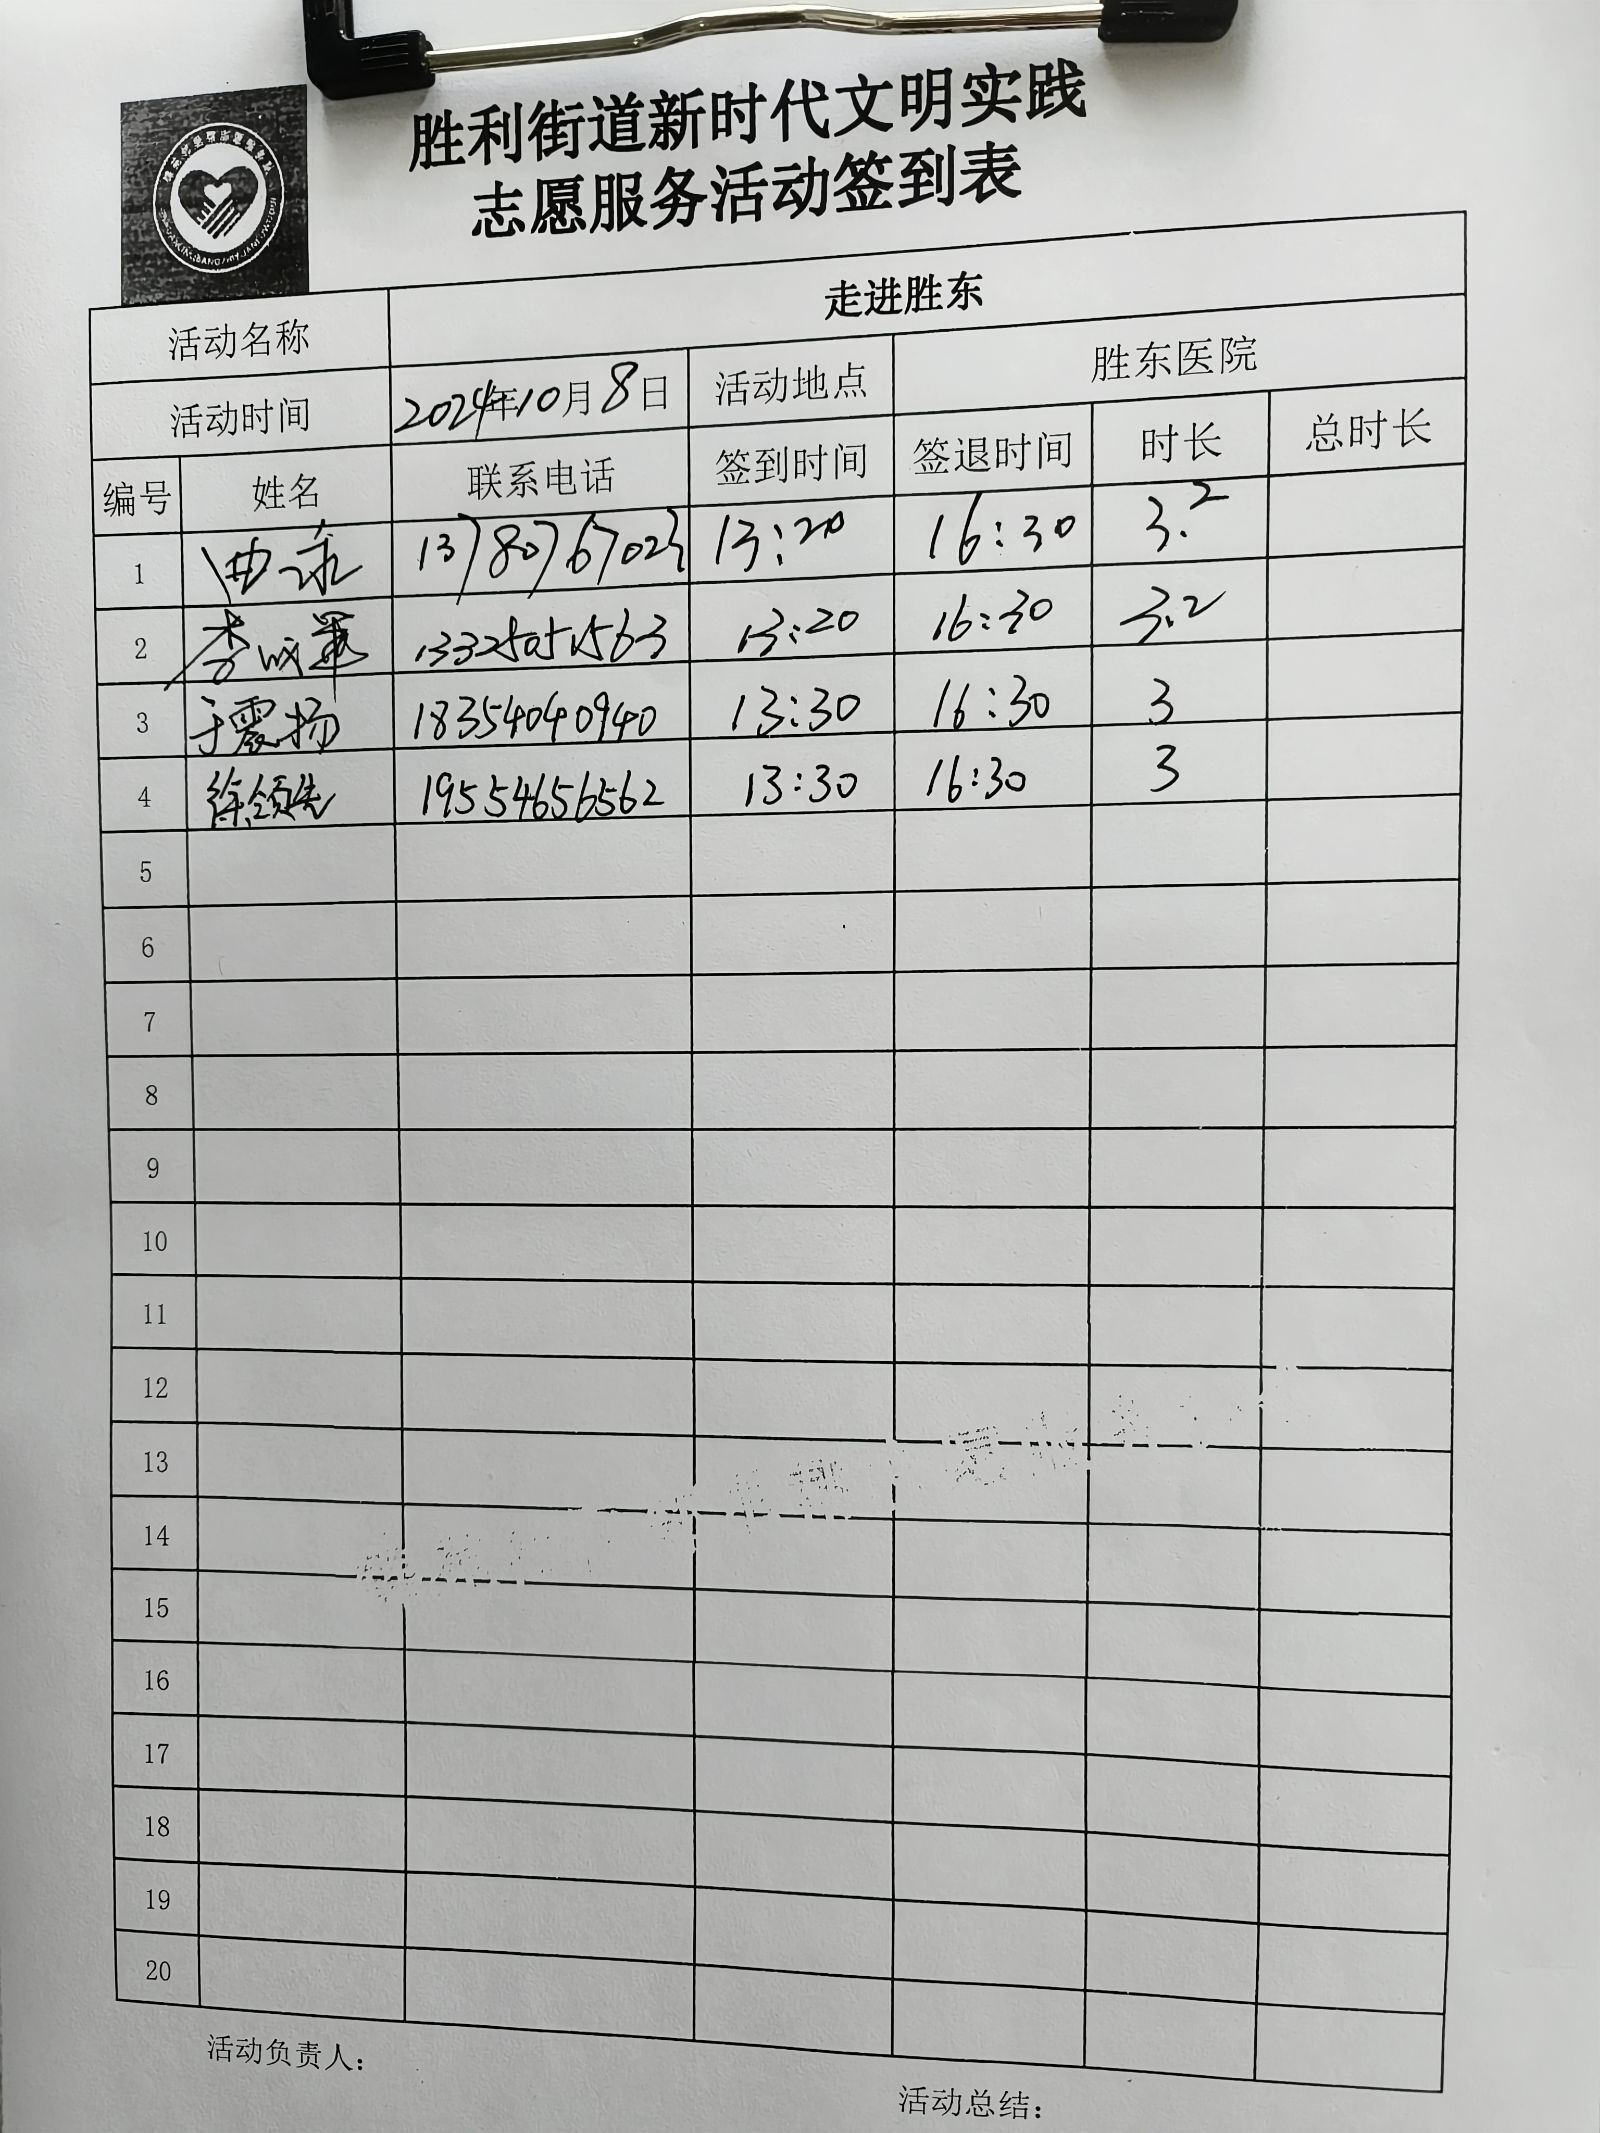 胜利街道新时代文明实践
志愿服务活动签到表
活动名称 走进胜东
活动时间 2024年10月8日 活动地点 胜东医院
编号 姓名 联系电话 签到时间 签退时间 时长 总时长
1 曲 13780767023 13:20 16:30 3.2
2 李成军 13325051563 13:20 16:30 3.2
3 于震扬 18354040940 13:30 16:30 3
4 徐领先 19554656562 13:30 16:30 3
5
6
7
8
9
10
11
12
13
14
15
16
17
18
19
20
活动负责人:
活动总结: